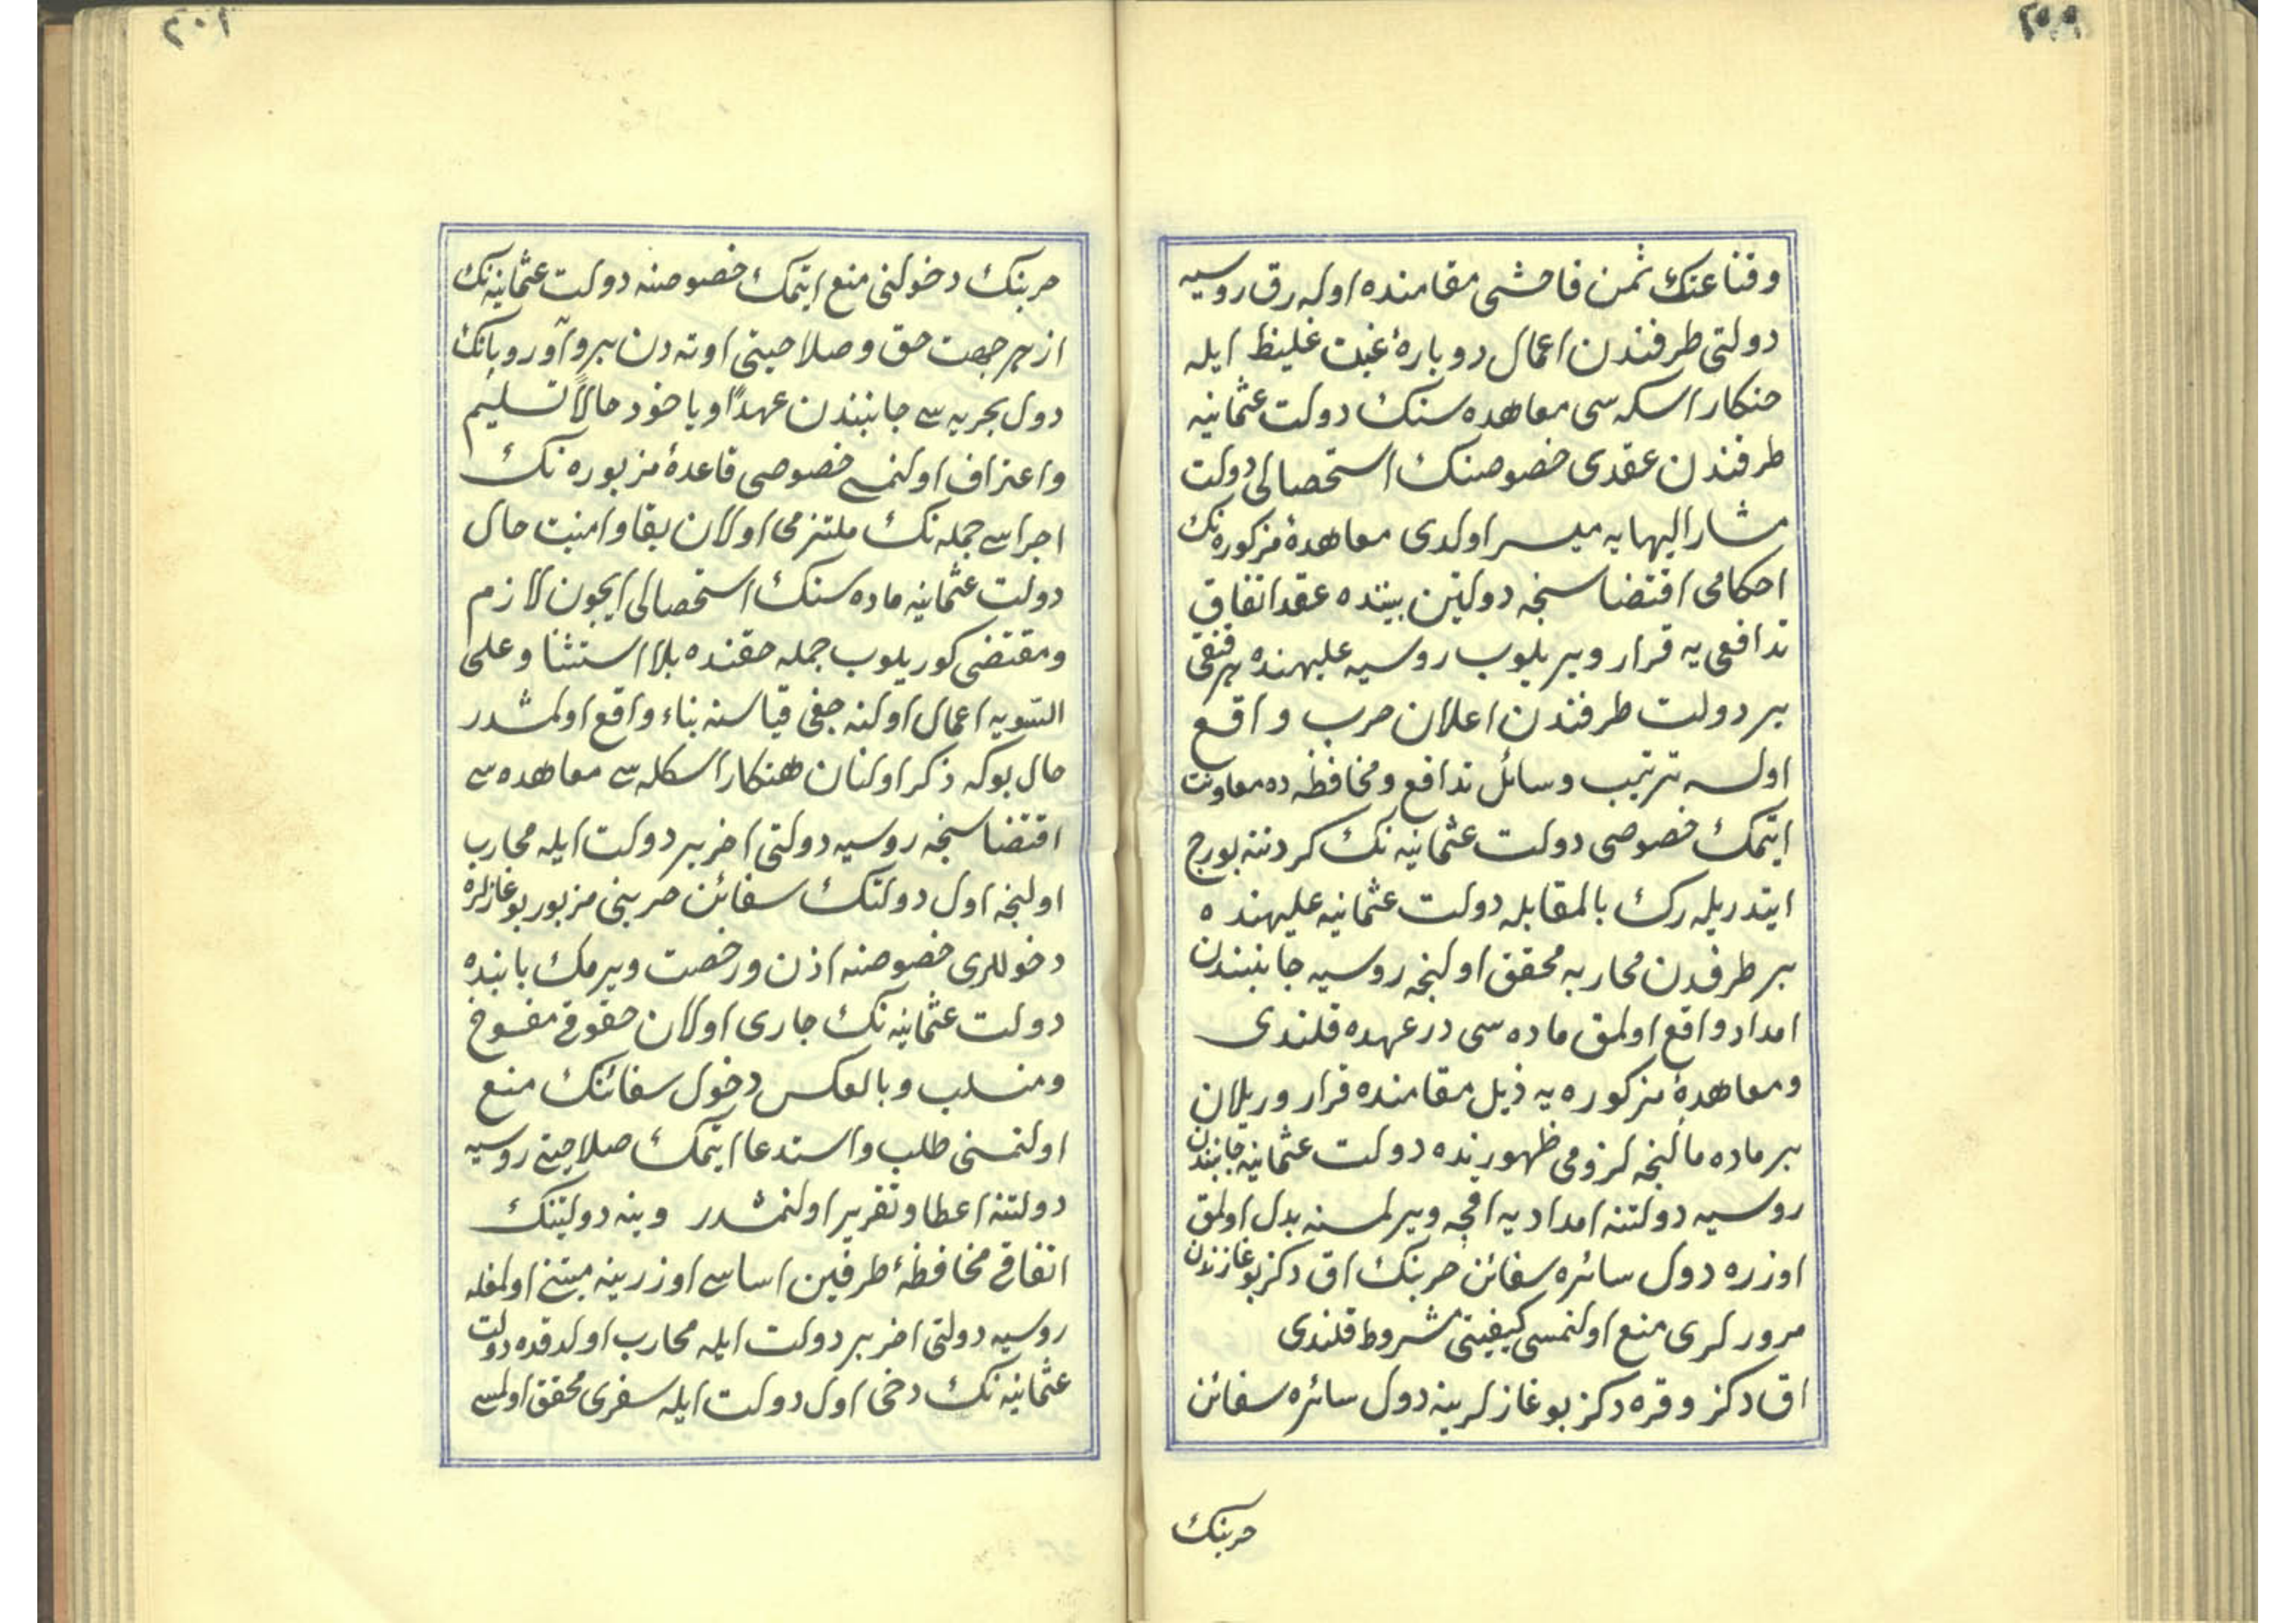 وقناعتك ثمن فاحشى مقامنده اوله رق روسيه
دولتى طرفندن اعمال دوباره غبت غليظ ايله
حنكار اسكه سى معاهده سنك دولت عثمانيه
طرفندن عقدى خصوصنك استحصالى دولت
مشار اليهايه ميسر اولدى معاهدۀ مذكوره نك
احكامى اقتضاسنجه دولتين بيننده عقد اتفاق
تدافعى يه قرار ويريلوب روسيه عليهنده هر قنقى
بر دولت طرفندن اعلان حرب واقع
اولسه ترتيب وسائل تدافع ومحافظه ده معاونت
ايتمك خصوصى دولت عثمانيه نك كردننه بورج
ايتدريله رك بالمقابله دولت عثمانيه عليهنده
بر طرفدن محاربه محقق اولنجه روسيه جانبندن
امداد واقع اولمق ماده سى در عهده قلندى
ومعاهدۀ مذكوره يه ذيل مقامنده قرار وريلان
بر ماده مألنجه لزومى ظهورنده دولت عثمانيه جانبندن
روسيه دولتنه امداديه اقچه ويرلمسنه بدل اولمق
اوزره دول سائره سفائن حربنك اق دكز بوغازندن
مرور لرى منع اولنمسى كيفيتى مشروط قلندى
اق دكز وقره دكز بوغازلرينه دول سائره سفائن
حربنك
حربنك دخولنى منع ايتمك خصوصنه دولت عثمانيه نك
از هر جهت حق وصلاحيتى اوته دن برو آوروپانك
دول بحريه سى جانبندن عهداً ويا خود حالاً تسليم
واعتراف اولنمسى خصوصى قاعدۀ مزبوره نك
اجراسى جمله نك ملتزمى اولان بقا وامنيت حال
دولت عثمانيه ماده سنك استحصالى ايچون لازم
ومقتضى كوريلوب جمله حقنده بلا استثنا وعلى
السويه اعمال اولنه جغى قياسنه بناء واقع اولمشدر
حال بوكه ذكر اولنان هنكار اسكله سى معاهده سى
اقتضاسنجه روسيه دولتى اخر بر دولت ايله محارب
اولنجه اول دولتك سفائن حربينى مزبور بوغازلره
دخوللرى خصوصنه اذن ورخصت ويرمك بابنده
دولت عثمانيه نك جارى اولان حقوقى مفسوخ
ومنسلب وبالعكس دخول سفائنك منع
اولنمسنى طلب واستدعا ايتمك صلاحيتى روسيه
دولتنه اعطا وتقرير اولنمشدر وينه دولتينك
اتفاقى محافظۀ طرفين اساسى اوزرينه مبتنى اولمغله
روسيه دولتى اخر بر دولت ايله محارب اولدقده دولت
عثمانيه نك دخى اول دولت ايله سفرى محقق اولمسى